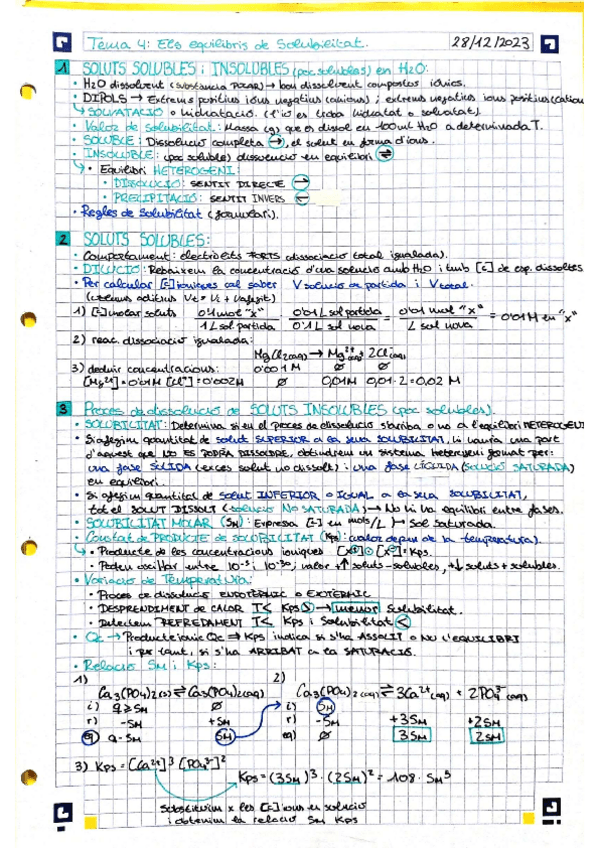 Tema 4: Els equilibris de Solubilitat. 28/12/2023
1 SOLUTS SOLUBLES i INSOLUBLES (poc solubles) en H2O:
• H2O dissolvent (substància POLAR) → bon dissolvent compostos iònics.
• DIPOLS → Extrems positius ions negatius (anions) ; extrems negatius ions positius (cations
↳ SOLVATACIÓ o hidratació. (l'ió es troba hidratat o solvatat).
• Valor de solubilitat: Massa (g) que es dissol en 100ml H2O a determinada T.
• SOLUBLE: Dissolució completa →, el solut en forma d'ions.
INSOLUBLE: (poc soluble) dissolució en equilibri ⇌
↳ • Equilibri HETEROGENI:
• DISSOLUCIÓ: SENTIT DIRECTE →
• PRECIPITACIÓ: SENTIT INVERS ←
• Regles de Solubilitat (formulari).
2 SOLUTS SOLUBLES:
• Comportament: electròlits FORTS (dissociació total igualada).
• DILUCIÓ: Rebaixem la concentració d'una solució amb H2O i tmb [c] de esp. dissoltes
• Per calcular [c] iòniques cal saber V solució de partida i V total.
(volums aditius Vt = Vi + Vafegit)
1) [c] molar soluts 0'1 mol "x" / 1 L sol partida · 0'01 L sol partida / 0'1 L sol nova = 0'01 mol "x" / L sol nova = 0'01 M en "x"
2) reac. dissociació igualada:
MgCl2(aq) → Mg2+(aq) + 2Cl-(aq)
3) deduir concentracions: 0'001 M ∅ ∅
[Mg2+] = 0'01M [Cl-] = 0'002M ∅ 0,01M 0,01·2 = 0,02 M
3 Procés de dissolució de SOLUTS INSOLUBLES (poc solubles).
• SOLUBILITAT: Determina si en el procés de dissolució s'arriba o no a l'equilibri HETEROGENI
• Si afegim quantitat de solut SUPERIOR a la seva SOLUBILITAT, hi hauria una part
d'aquest que NO ES PODRÀ DISSOLDRE, obtindrem un sistema heterogeni format per:
una fase SÒLIDA (excés solut no dissolt) i una fase LÍQUIDA (SOLUCIÓ SATURADA)
en equilibri.
• Si afegim quantitat de solut INFERIOR o IGUAL a la seva SOLUBILITAT,
tot el SOLUT DISSOLT (solució NO SATURADA) → No hi ha equilibri entre fases.
• SOLUBILITAT MOLAR (SM): Expressa [c] en mols/L → Sol saturada.
• Constat de PRODUCTE de SOLUBILITAT (Kps): (valor depen de la temperatura).
↳ • Producte de les concentracions iòniques [X+] · [X-] = Kps.
• Poden oscil·lar entre 10-5 i 10-30; valor +↑ soluts + solubles, +↓ soluts + solubles.
• Variació de Temperatura:
• Procés de dissolució ENDOTÈRMIC o EXOTÈRMIC
• DESPRENDIMENT de CALOR T< Kps → menor solubilitat.
• Detectem REFREDAMENT T< Kps i Solubilitat <
• Qc → Producte iònic Qc ⇒ Kps indica si s'ha ASSOLIT o NO L'EQUILIBRI
i per tant, si s'ha ARRIBAT a la SATURACIÓ.
• Relació SM i Kps:
1) 2)
Ca3(PO4)2(s) ⇌ Ca3(PO4)2(aq) Ca3(PO4)2(aq) ⇌ 3Ca2+(aq) + 2PO43-(aq)
i) q≥SM ∅ i) SM
r) -SM +SM r) -SM +3SM +2SM
eq) q-SM SM eq) ∅ 3SM 2SM
3) Kps = [Ca2+]3 [PO43-]2
Kps = (3SM)3 · (2SM)2 = 108 · SM5
Substituïm x les [c] ions en solució
i obtenim la relació SM Kps